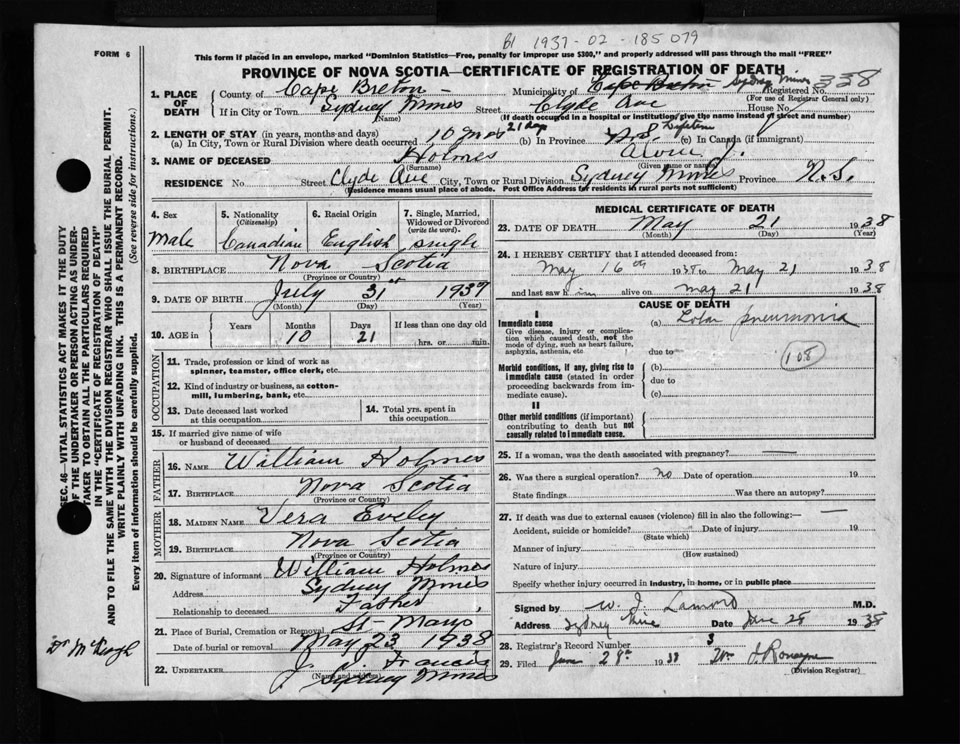 B1 1937-02-185079
FORM 6
This form if placed in an envelope, marked "Dominion Statistics—Free, penalty for improper use $300," and properly addressed will pass through the mail "FREE"
PROVINCE OF NOVA SCOTIA—CERTIFICATE OF REGISTRATION OF DEATH
1. PLACE OF DEATH
County of Cape Breton Municipality of Cape Breton Sydney Mines Registered No. 338
(For use of Registrar General only)
If in City or Town Sydney Mines Street Clyde Ave House No.
(Name) (If death occurred in a hospital or institution, give the name instead of street and number)
2. LENGTH OF STAY (in years, months and days)
(a) In City, Town or Rural Division where death occurred 10 mos 21 days (b) In Province (c) In Canada (if immigrant)
3. NAME OF DECEASED Holmes Alvin J.
(Surname) (Given name or names)
RESIDENCE No. Street Clyde Ave City, Town or Rural Division Sydney Mines Province N.S.
(Residence means usual place of abode. Post Office Address for residents in rural parts not sufficient)
4. Sex 5. Nationality (Citizenship) 6. Racial Origin 7. Single, Married, Widowed or Divorced (write the word).
Male Canadian English single
8. BIRTHPLACE Nova Scotia
(Province or Country)
9. DATE OF BIRTH July 31st 1937
(Month) (Day) (Year)
10. AGE in Years Months Days If less than one day old
10 21 hrs. or min.
OCCUPATION
11. Trade, profession or kind of work as spinner, teamster, office clerk, etc.
12. Kind of industry or business, as cotton-mill, lumbering, bank, etc.
13. Date deceased last worked at this occupation
14. Total yrs. spent in this occupation
15. If married give name of wife or husband of deceased
FATHER
16. NAME William Holmes
17. BIRTHPLACE Nova Scotia
(Province or Country)
MOTHER
18. MAIDEN NAME Vera Evely
19. BIRTHPLACE Nova Scotia
(Province or Country)
20. Signature of informant William Holmes
Address Sydney Mines
Relationship to deceased Father
21. Place of Burial, Cremation or Removal St-Mary's
Date of burial or removal May 23, 1938
22. UNDERTAKER J. J. Francis
(Name and address) Sydney Mines
MEDICAL CERTIFICATE OF DEATH
23. DATE OF DEATH May 21 1938
(Month) (Day) (Year)
24. I HEREBY CERTIFY that I attended deceased from:
May 16th 1938 to May 21 1938
and last saw him alive on May 21 1938
CAUSE OF DEATH
I
Immediate cause (a) Lobar pneumonia
Give disease, injury or complication which caused death, not the mode of dying, such as heart failure, asphyxia, asthenia, etc.
due to
108
Morbid conditions, if any, giving rise to immediate cause (stated in order proceeding backwards from immediate cause).
(b)
due to
(c)
II
Other morbid conditions (if important) contributing to death but not causally related to immediate cause.
25. If a woman, was the death associated with pregnancy?
26. Was there a surgical operation? no Date of operation 19
State findings Was there an autopsy?
27. If death was due to external causes (violence) fill in also the following:—
Accident, suicide or homicide? Date of injury 19
(State which)
Manner of injury
(How sustained)
Nature of injury
Specify whether injury occurred in industry, in home, or in public place
Signed by W. J. Lamord M.D.
Address Sydney Mines Date June 28 1938
28. Registrar's Record Number 3
29. Filed June 29th 1938
(Division Registrar)
SEC. 46—VITAL STATISTICS ACT MAKES IT THE DUTY
OF THE UNDERTAKER OR PERSON ACTING AS UNDERTAKER TO OBTAIN ALL THE PARTICULARS REQUIRED
IN THE "CERTIFICATE OF REGISTRATION OF DEATH"
AND TO FILE THE SAME WITH THE DIVISION REGISTRAR WHO SHALL ISSUE THE BURIAL PERMIT.
WRITE PLAINLY WITH UNFADING INK. THIS IS A PERMANENT RECORD.
Every item of information should be carefully supplied. (See reverse side for instructions.)